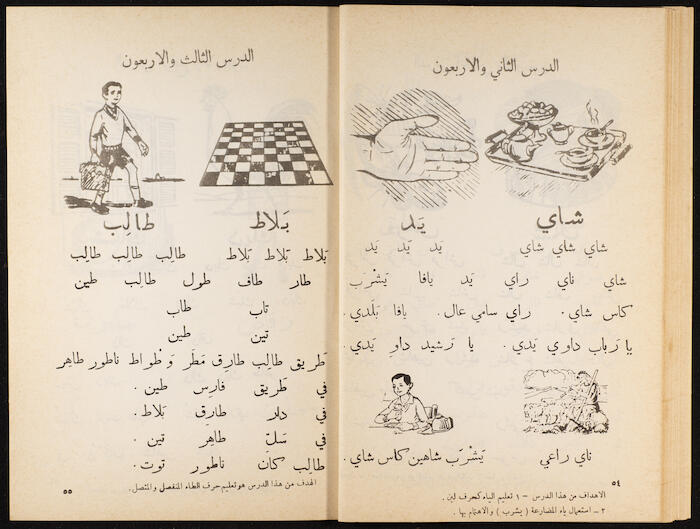 الدرس الثاني والاربعون
شاي يَد
شاي شاي شاي يَد يَد يَد
شاي ناي راي يَد يافا يَشْرَب
كاس شاي. راي سامي عال. يافا بَلَدي.
يا رَباب داوي يَدي. يا رَشيد داوِ يَدي.
ناي راعي يَشْرَب شاهين كاس شاي.
الاهداف من هذا الدرس – ١ تعليم الياء كحرف لين.
٢ – استعمال ياء المضارعة ( يشرب ) والاهتمام بها.
٥٤
الدرس الثالث والاربعون
بَلاط طالِب
بَلاط بَلاط بَلاط طالِب طالِب طالِب
طار طاف طول طالِب طين
تاب طاب
تين طين
طَريق طالِب طارِق مَطَر وَطْواط ناطور طاهِر
في طَريق فارِس طين.
في دار طارِق بَلاط.
في سَلّ طاهِر تين.
طالِب كانَ ناطور توت.
الهدف من هذا الدرس هو تعليم حرف الطاء المنفصل والمتصل.
٥٥